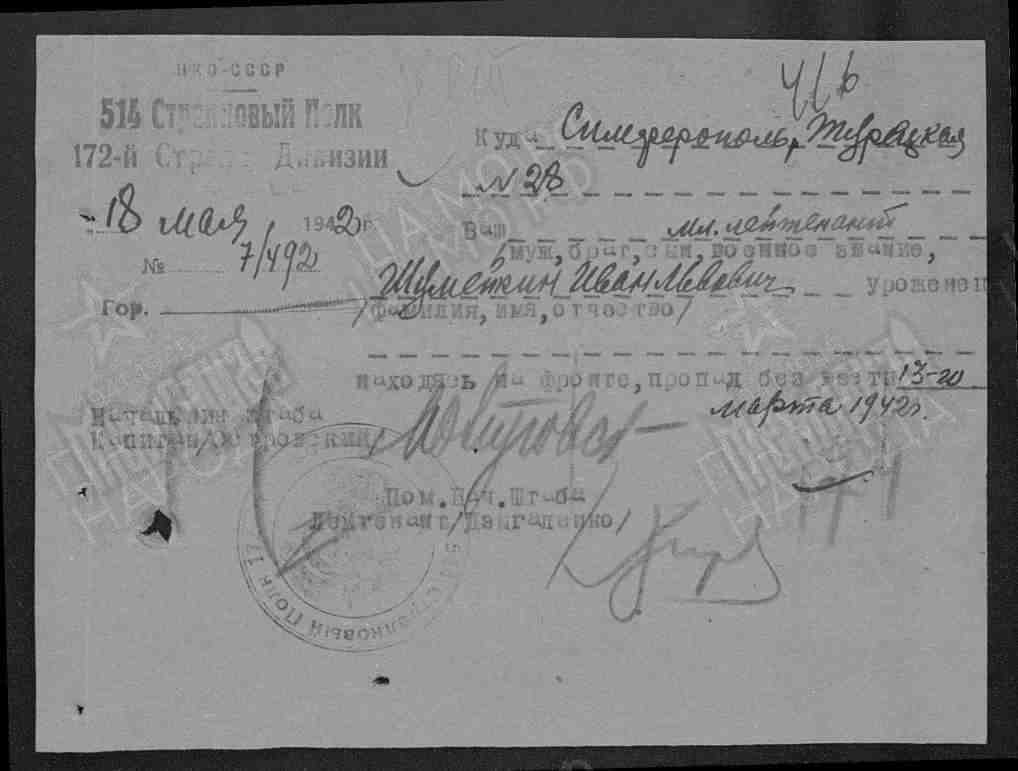 НКО-СССР
514 Стрелковый Полк
172-й Стрелк. Дивизии
18 мая 1942 г.
№ 7/492
Гор.
416
Куда Симферополь,
№ 28
Ваш мл. лейтенант
/муж, брат, сын, военное звание,
Иван Львович уроженец
/фамилия, имя, отчество/
находясь на фронте, пропал без вести 13-го
марта 1942г.
Начальник Штаба
Капитан
Пом. Нач. Штаба
Лейтенант
Стрелковый Полк 17
ПАМЯТЬ
НАРОДА